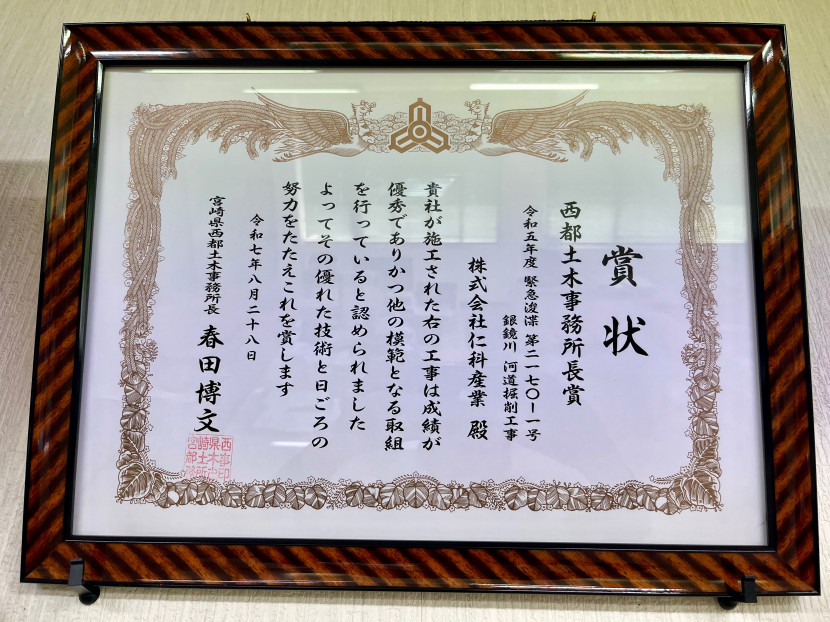 賞状
西都土木事務所長賞
令和五年度 緊急浚渫 第二一七〇ー一号
銀鏡川 河道掘削工事
株式会社仁科産業 殿
貴社が施工された右の工事は成績が
優秀でありかつ他の模範となる取組
を行っていると認められました
よってその優れた技術と日ごろの
努力をたたえこれを賞します
令和七年八月二十八日
宮崎県西都土木事務所長 春田博文